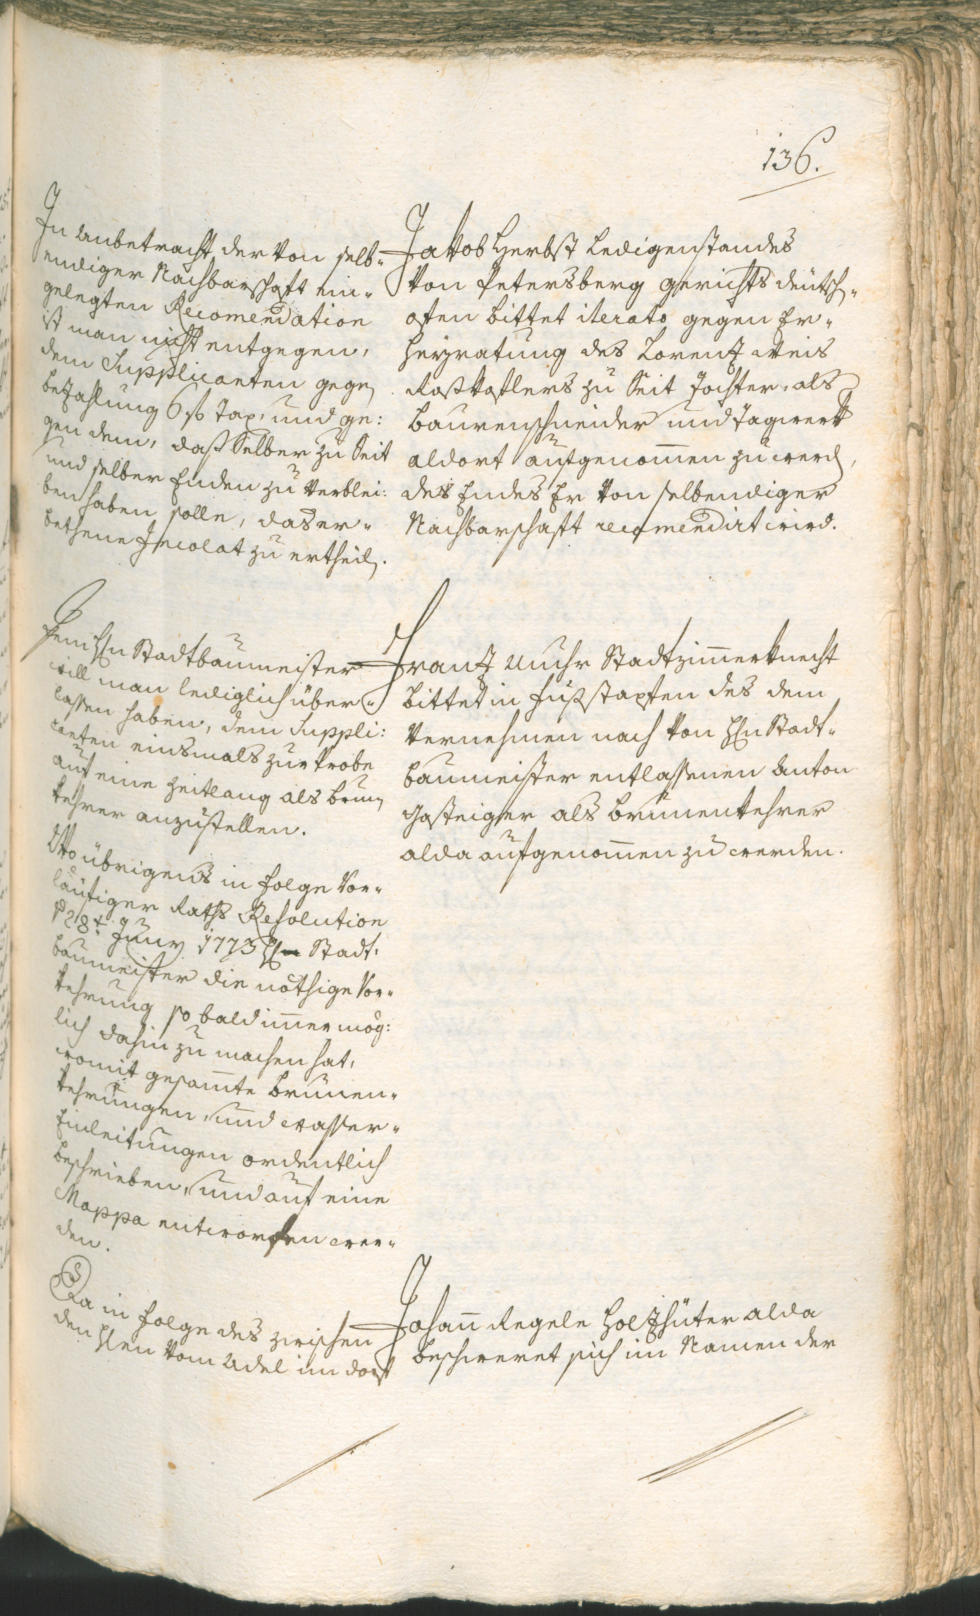 136.
In Anbetracht der von selb-
endiger Nachbarschafft ein-
gelegten Recomendation
ist man nicht entgegen,
dem Supplicanten gegen
bezahlung 6 f Tax, und ge:
gen dem, daß Selber zu Seit
und selber Enden zu verblei:
ben haben solle, das er-
bethene Incolat zu ertheilen.
Jakob Herbst Ledigenstandes
von Petersberg gerichts deütsch-
ofen bittet iterato gegen Er-
heyratung des Lorenz Weis
zu Seit Tochter, als
Baurenschneider und Tagwerk
aldort aufgenomen zu werden,
des Endes Er von selbendiger
Nachbarschafft recomendirt wird.
Dem Hn Stadtbaumeister
will man lediglich über-
lassen haben, dem Suppli:
canten einsmals zur Probe
auf eine Zeitlang als brun
kehrer anzustellen.
Wo übrigens in Folge vor-
läufiger Raths Resolution
28t Juny 1773 Hn Stadt-
baumeister die nöthige Vor-
kehrung so bald immer mög:
lich dahin zu machen hat,
womit gesamte Brunen-
kehrungen, und Wasser-
Einleitungen ordentlich
beschrieben, und auf eine
Mappa entworfen wer-
den.
Franz Stadtzimerknecht
bittet in Fußstapfen des dem
Vernehmen nach von Hn Stadt-
baumeister entlassenen Anton
Gasteiger als Brunenkehrer
alda aufgenomen zu werden.
Da in Folge des zwischen
den Hlen vom Adel im dorf
Johann Regele Holzhüter alda
beschweret sich im Namen der